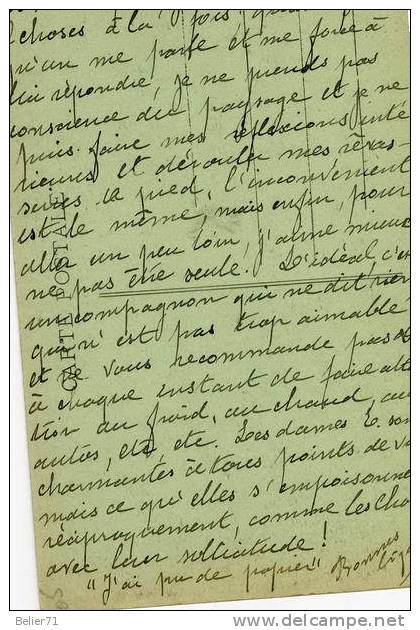 choses à la fois quand
qu'un me parle et me force à
lui répondre, je ne prends pas
conscience du paysage et je ne
puis faire mes réflexions inté
rieures et dérouler mes rêvas-
series. A pied, l'inconvénient
est le même, mais enfin, pour
aller un peu loin, j'aime mieux
ne pas être seule. L'idéal, c'est
un compagnon qui ne dit rien
qui n'est pas trop aimable
et vous recommande pas
à chaque instant de faire atten
tion au froid, au chaud, aux
autos, etc, etc. Les dames L. sont
charmantes à tous points de vue
mais ce qu'elles s'empoisonnent
réciproquement, comme les Cha
avec leur sollicitude !
"J'ai pu de papier" Bonnes
CARTE POSTALE
©delcampe.net
Belier71